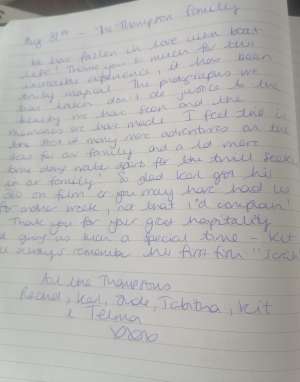 Aug 31st - The Thompson Family
We have fallen in love with boat
life! Thank you so much for this
experience, it have been
truly magical. The photographs we
have taken don't do justice to the
beauty we have seen and the
memories we have made. I feel this is
the start of many more adventures on the
for our family and a lot more
time for the thrill seekers
in our family! So glad Karl got his
on film or you may have had us
for another week, not that I'd complain!
Thank you for your great hospitality
giving us such a special time - Kit
always remember his first fish
All the Thompsons
Rachel, Karl, Jude, Tabitha, Kit
& Telma
xxxx